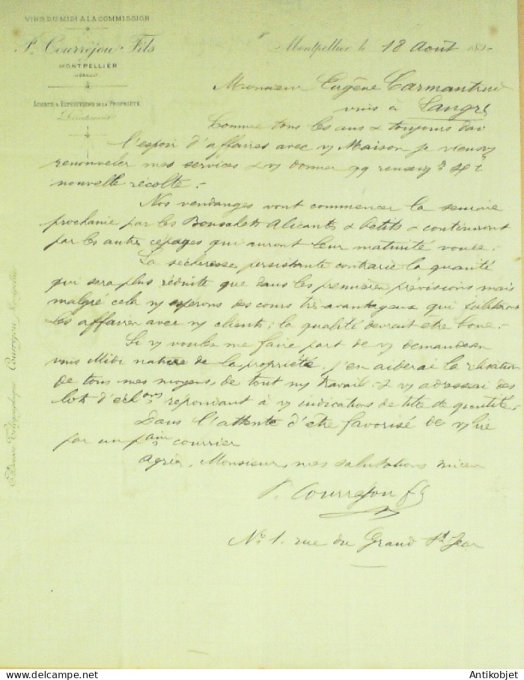 VINS DU MIDI A LA COMMISSION
P. Courréjou Fils
MONTPELLIER
HÉRAULT
ACHATS & EXPÉDITIONS DE LA PROPRIÉTÉ
Montpellier le 18 Août 189
Monsieur Eugène
vins à Langres
Comme tous les ans & toujours dans
l'espoir d'affaires avec Maison je viens
renouveler mes services & donner
nouvelle récolte.
Nos vendanges vont commencer la semaine
prochaine par les Bouschets Alicants & Petits & continueront
par les autres cépages qui auront leur maturité voulue.
La sécheresse persistante contrarie la quantité
qui sera plus réduite que dans les premières prévisions mais
malgré cela espérons des cours très avantageux qui
les affaires avec clients; la qualité devrait être bonne.
Si voulez me faire part de demandes en
vins Midi nature de la propriété j'en aiderai la
de tous mes moyens de tout mon travail & adresserai des
répondant à indications de et de quantité.
Dans l'attente d'être favorisé de
par un courrier
Agréez, Monsieur, mes salutations
P. Courréjou fils
No 1. rue du Grand St Jean
Adresse Télégraphique Courréjou Montpellier
www.antikobjet.com
Antikobjet